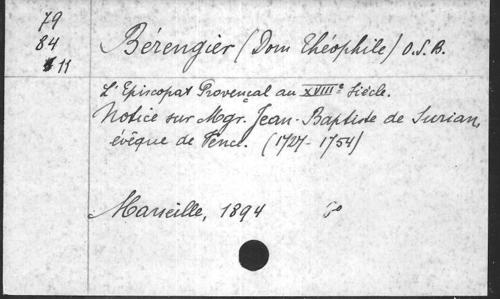 79
84
11
Bérengier (Dom Théophile) O.S.B.
L'Episcopat Provençal au XVIIIe Siècle.
Notice sur Mgr. Jean-Baptiste de Surian,
évêque de Vence. (1727-1754)
Marseille, 1894 8o